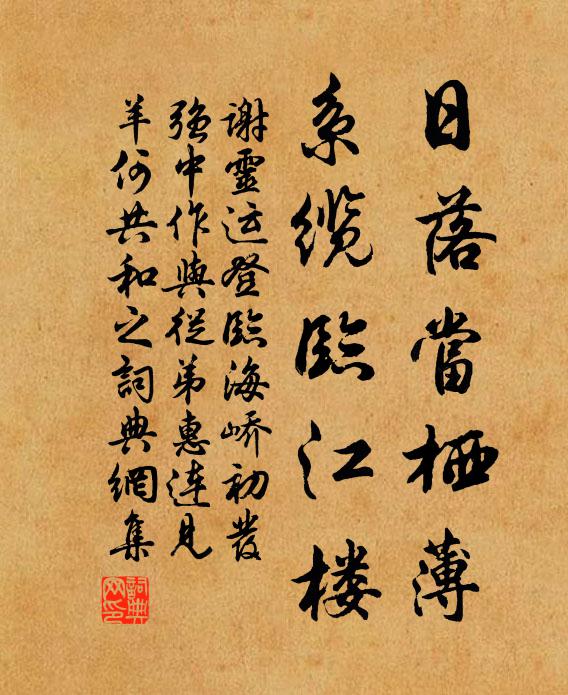 日落當栖薄
系纜臨江楼
謝靈运登臨海峤初發
强中作與從弟惠连見
羊何共和之詞典網集
詞典
网印